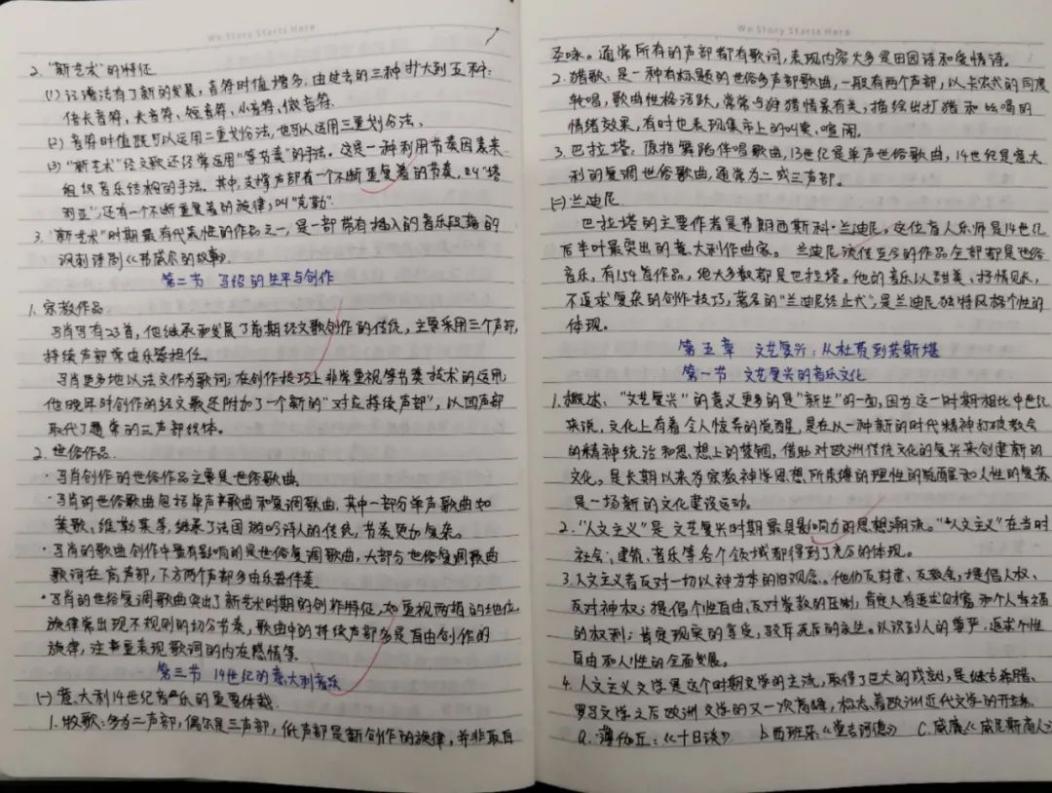 We Story Starts Here
2. "新艺术"的特征
(1) 记谱法有了新的发展,音符时值增多,由过去的三种扩大到五种:
倍长音符、长音符、短音符、小音符、微音符.
(2) 音符时值既可以运用二重划分法,也可以运用三重划分法、
(3) "新艺术"经文歌还经常运用"等节奏"的手法。这是一种利用节奏因素来
组织音乐结构的手法。其中,支撑声部有一个不断重复着的节奏,叫"塔
列亚";还有一个不断重复着的旋律,叫"克勒".
3. "新艺术"时期最有代表性的作品之一,是一部带有插入的音乐段落的
讽刺诗剧《福威尔的故事》.
第二节 马肖的生平与创作
1. 宗教作品
马肖写有23首,他继承和发展了前期经文歌创作的传统,主要采用三个声部,
持续声部常由乐器担任.
马肖更多地以法文作为歌词;在创作技巧上非常重视等节奏技术的运用
他晚年时创作的经文歌还附加了一个新的"对应持续声部",以四声部
取代了通常的三声部织体.
2. 世俗作品
· 马肖创作的世俗作品主要是世俗歌曲
· 马肖的世俗歌曲包括单声部歌曲和复调歌曲,其中一部分单声歌曲如
莱歌、维勒莱等,继承了法国游吟诗人的传统,节奏更加复杂。
· 马肖的歌曲创作中最有影响的是世俗复调歌曲,大部分世俗复调歌曲
歌词在高声部,下方两个声部多由乐器伴奏
· 马肖的世俗复调歌曲突出了新艺术时期的创作特征,如重视两拍的地位
旋律常出现不规则的切分节奏,歌曲中的持续声部多是自由创作的
旋律,注重表现歌词的内在感情等.
第三节 14世纪的意大利音乐
(一) 意大利14世纪音乐的重要体裁
1. 牧歌:多为二声部,偶尔是三声部,低声部是新创作的旋律,并非取自
We Story Starts Here
圣咏。通常所有的声部都有歌词,表现内容大多是田园诗和爱情诗。
2. 猎歌:是一种有标题的世俗多声部歌曲,一般有两个声部,以卡农式的同度
轮唱,歌曲性格活跃,常常与狩猎情景有关,描绘出打猎和吆喝的
情绪效果,有时也表现集市上的叫卖、喧闹.
3. 巴拉塔:原指舞蹈伴唱歌曲,13世纪是单声世俗歌曲,14世纪是意大
利的复调世俗歌曲,通常为二或三声部。
(二) 兰迪尼
巴拉塔的主要作者是弗朗西斯科·兰迪尼,这位盲人乐师是14世纪
后半叶最突出的意大利作曲家。兰迪尼流传至今的作品全部都是世俗
音乐,有154首作品,绝大多数都是巴拉塔。他的音乐以甜美、抒情见长,
不追求复杂的创作技巧,著名的"兰迪尼终止式",是兰迪尼独特风格个性的
体现。
第五章 文艺复兴:从杜费到若斯坎
第一节 文艺复兴的音乐文化
1. 概述:"文艺复兴"的意义更多的是"新生"的一面,因为这一时期相比中世纪
来说,文化上有着令人惊奇的觉醒,是在以一种新的时代精神打破教会
的精神统治和思想上的禁锢,借助对欧洲传统文化的复兴来创建新的
文化,是长期以来为宗教神学思想所束缚的理性的觉醒和人性的复苏
是一场新的文化建设运动.
2. "人文主义"是文艺复兴时期最具影响力的思想潮流。"人文主义"在当时
社会、建筑、音乐等各个领域都得到了充分的体现。
3. 人文主义者反对一切以神为本的旧观念。他们反封建、反教会,提倡人权、
反对神权;提倡个性自由,反对宗教的压制,肯定人有追求财富和个人幸福
的权利;肯定现实的享受,毁斥死后的永生。认识到人的尊严,追求个性
自由和人性的全面发展。
4. 人文主义文学是这个时期文学的主流,取得了巨大的成就,是继古希腊、
罗马文学之后欧洲文学的又一次高峰,标志着欧洲近代文学的开端.
a. 薄伽丘:《十日谈》 b. 西班牙《堂吉诃德》 C. 威廉《威尼斯商人》